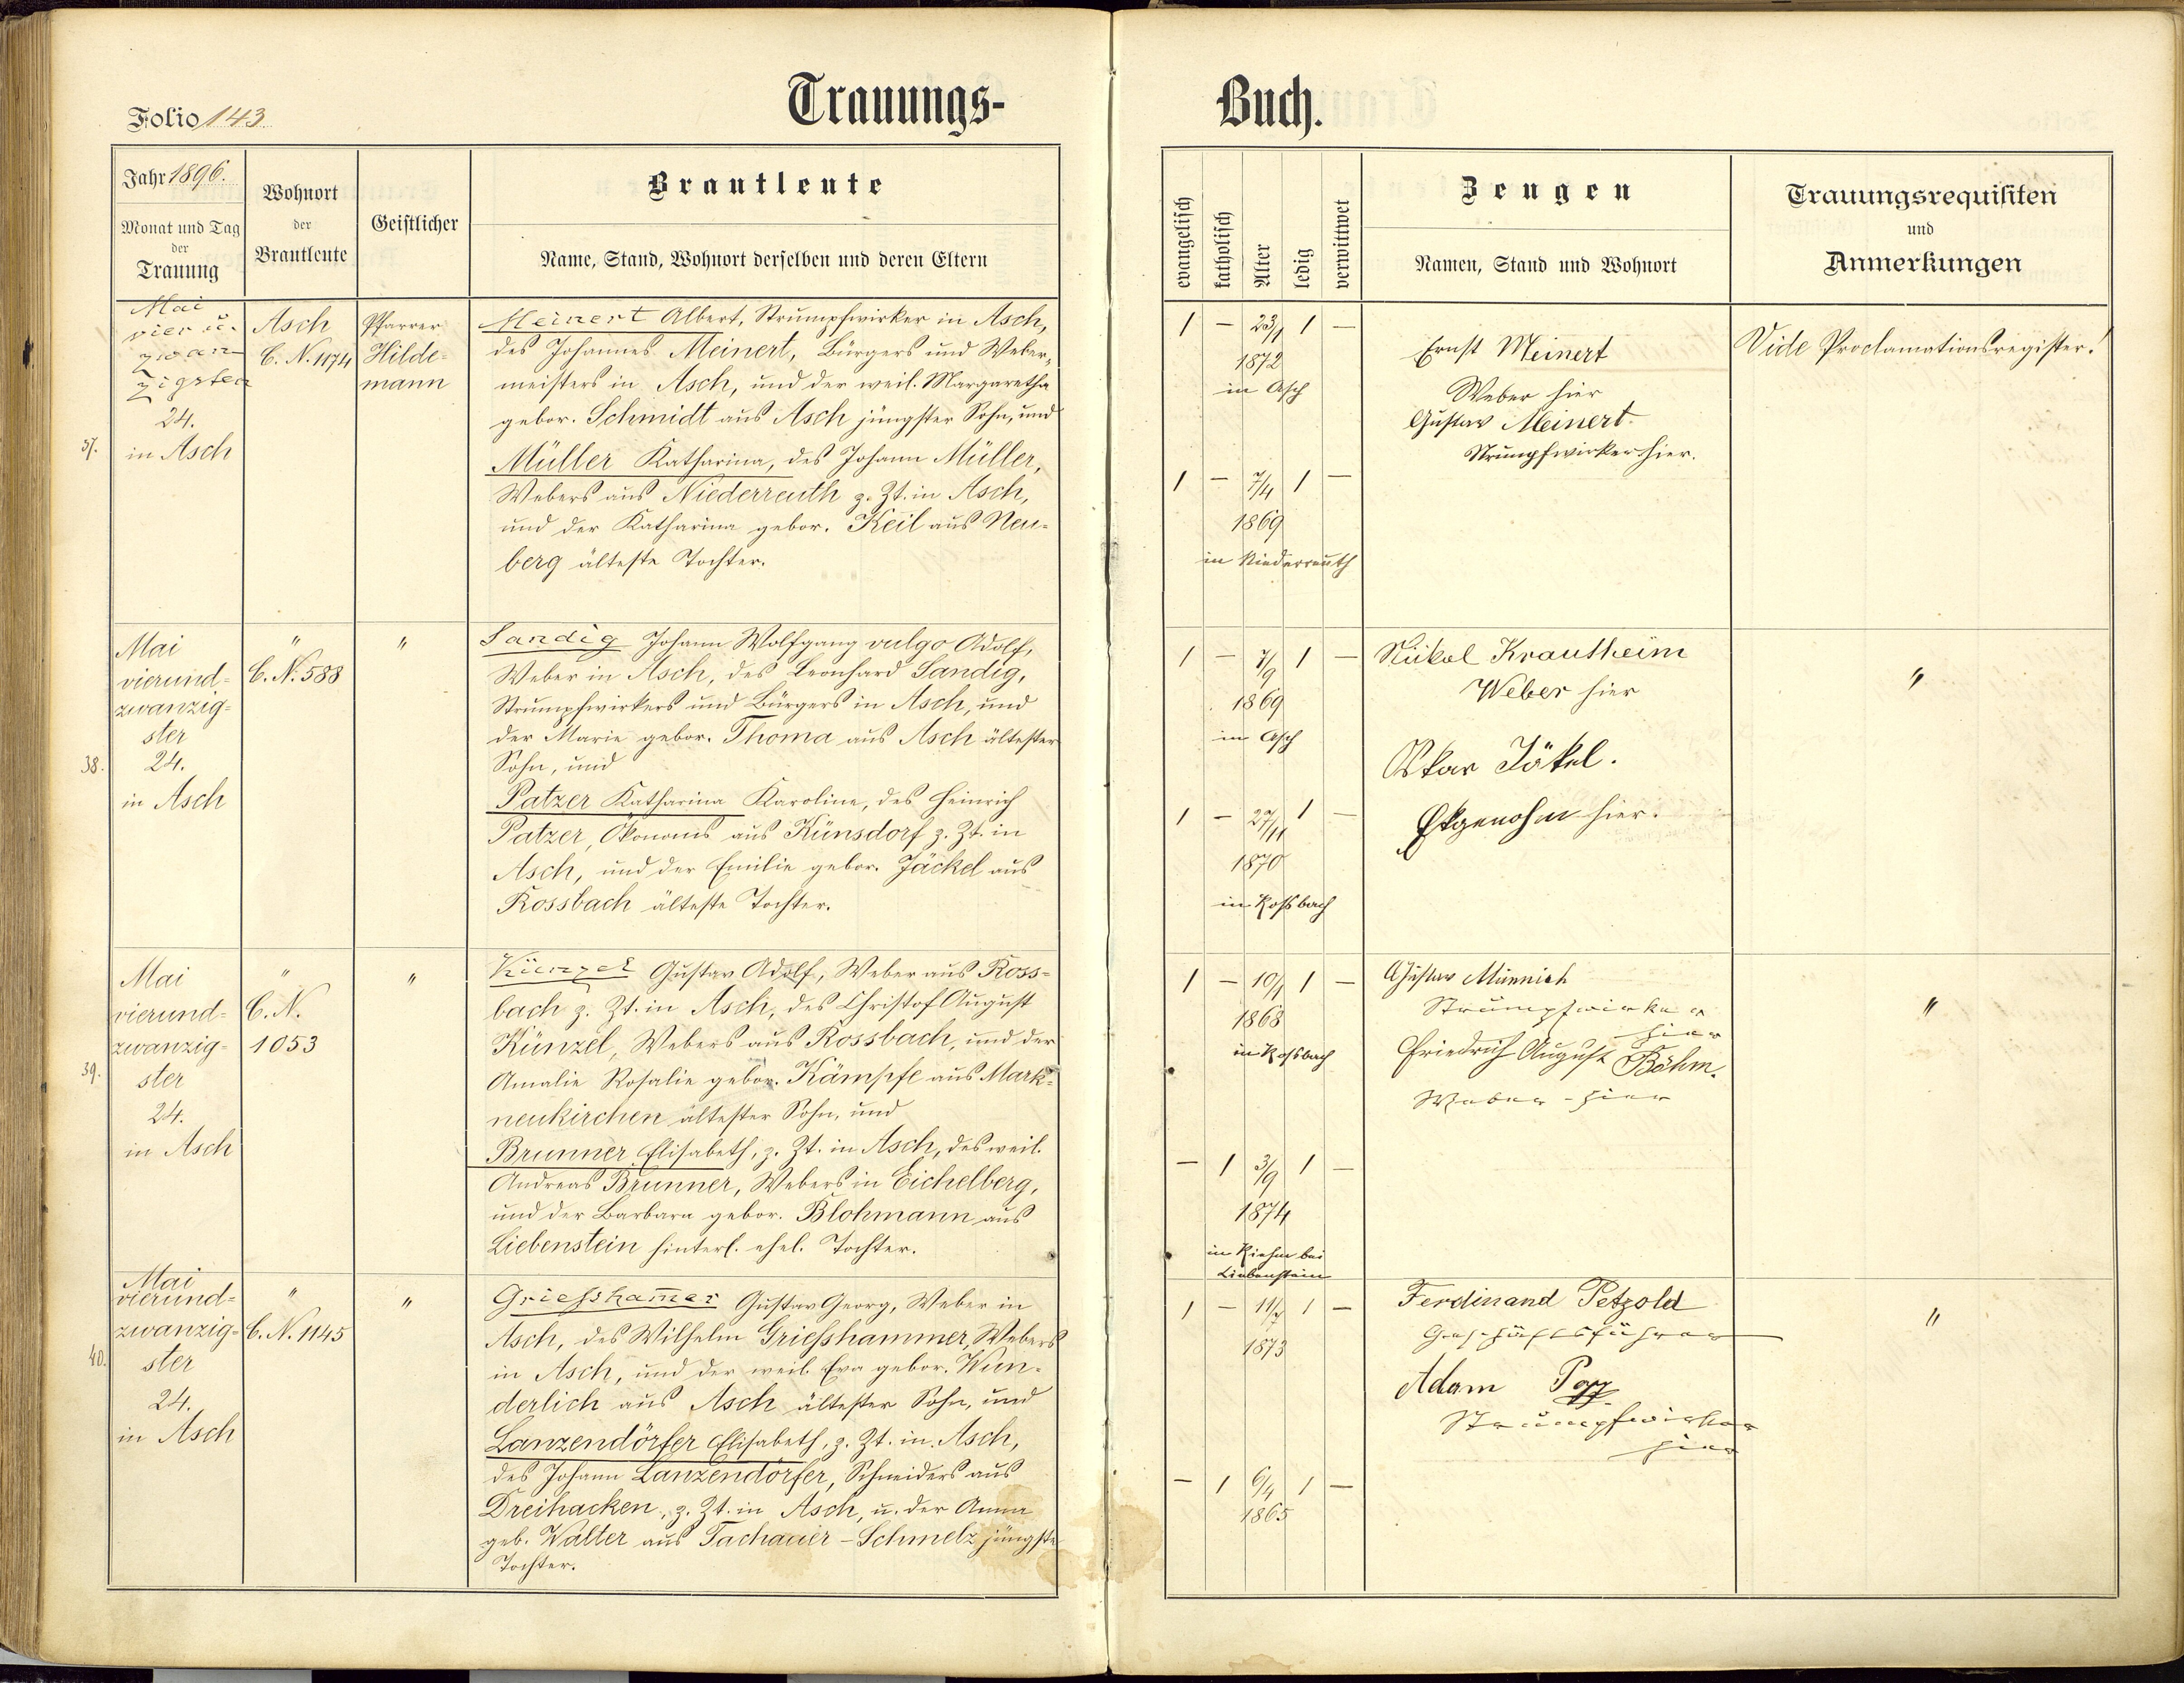 Trauungs-
Buch.
Folio 143.
Jahr 1896.
Monat und Tag
der
Trauung
Wohnort
der
Brautleute
Geistlicher
Brautleute
Name, Stand, Wohnort derselben und deren Eltern
evangelisch
katholisch
Alter
ledig
verwittwet
Zeugen
Namen, Stand und Wohnort
Trauungsrequisiten
und
Anmerkungen
37.
Mai
vier u.
zwan-
zigsten
24.
in Asch
Asch
C. N. 1174
Pfarrer
Hilde-
mann
Meinert Albert, Strumpfwirker in Asch,
des Johannes Meinert, Bürgers und Weber-
meisters in Asch, und der weil. Margaretha
gebor. Schmidt aus Asch jüngster Sohn, und
Müller Katharina, des Johann Müller,
Webers aus Niederreuth z. Zt. in Asch,
und der Katharina gebor. Keil aus Neu-
berg älteste Tochter.
1 – 23/1 1 –
1872
in Asch
1 – 7/4 1 –
1869
in Niederreuth
Ernst Meinert
Weber hier
Gustav Meinert
Strumpfwirker hier.
Vide Proclamationsregister!
38.
Mai
vierund-
zwanzig-
ster
24.
in Asch
"
C. N. 588
"
Sandig Johann Wolfgang vulgo Adolf,
Weber in Asch, des Leonhard Sandig,
Strumpfwirkers und Bürgers in Asch, und
der Marie gebor. Thoma aus Asch ältester
Sohn, und
Patzer Katharina Karoline, des Heinrich
Patzer, Ökonoms aus Künsdorf z. Zt. in
Asch, und der Emilie gebor. Jäckel aus
Rossbach älteste Tochter.
1 – 7/9 1 –
1869
in Asch
1 – 27/11 1 –
1870
in Roßbach
Nikol Krautheim
Weber hier
Oskar Jäkel.
hier.
"
39.
Mai
vierund-
zwanzig-
ster
24.
in Asch
"
C. N.
1053
"
Künzel Gustav Adolf, Weber aus Ross-
bach z. Zt. in Asch, des Christof August
Künzel, Webers aus Rossbach, und der
Amalie Rosalie gebor. Kämpfe aus Mark-
neukirchen ältester Sohn, und
Brunner Elisabeth, z. Zt. in Asch, des weil.
Andreas Brunner, Webers in Eichelberg,
und der Barbara gebor. Blohmann aus
Liebenstein hinterl. ehel. Tochter.
1 – 10/1 1 –
1868
in Roßbach
– 1 3/9 1 –
1874
in bei
Liebenstein
Gustav Münnich
Strumpfwirker
hier
Friedrich August Böhm.
Weber – hier
"
40.
Mai
vierund-
zwanzig-
ster
24.
in Asch
"
C. N. 1145
"
Griesshamer Gustav Georg, Weber in
Asch, des Wilhelm Griesshammer, Webers
in Asch, und der weil. Eva gebor. Wun-
derlich aus Asch ältester Sohn, und
Lanzendörfer Elisabeth, z. Zt. in Asch,
des Johann Lanzendörfer, Schneiders aus
Dreihacken, z. Zt. in Asch, u. der Anna
geb. Walter aus Tachauer-Schmelz jüngste
Tochter.
1 – 11/7 1 –
1873
– 1 6/4 1 –
1865
Ferdinand Petzold
Geschäftsführer
Adam Popp
Strumpfwirker
hier
"